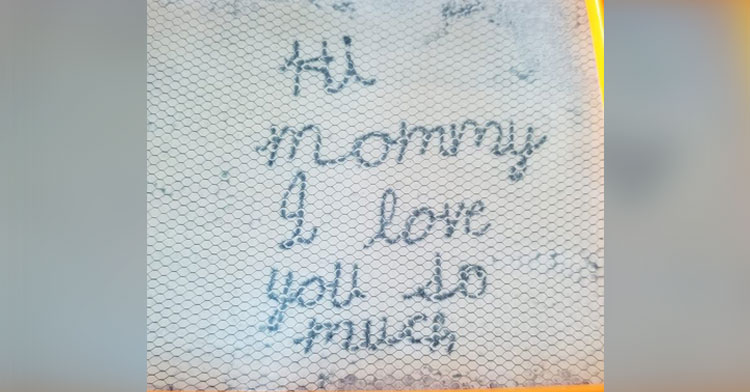 Hi
mommy
I love
you so
much